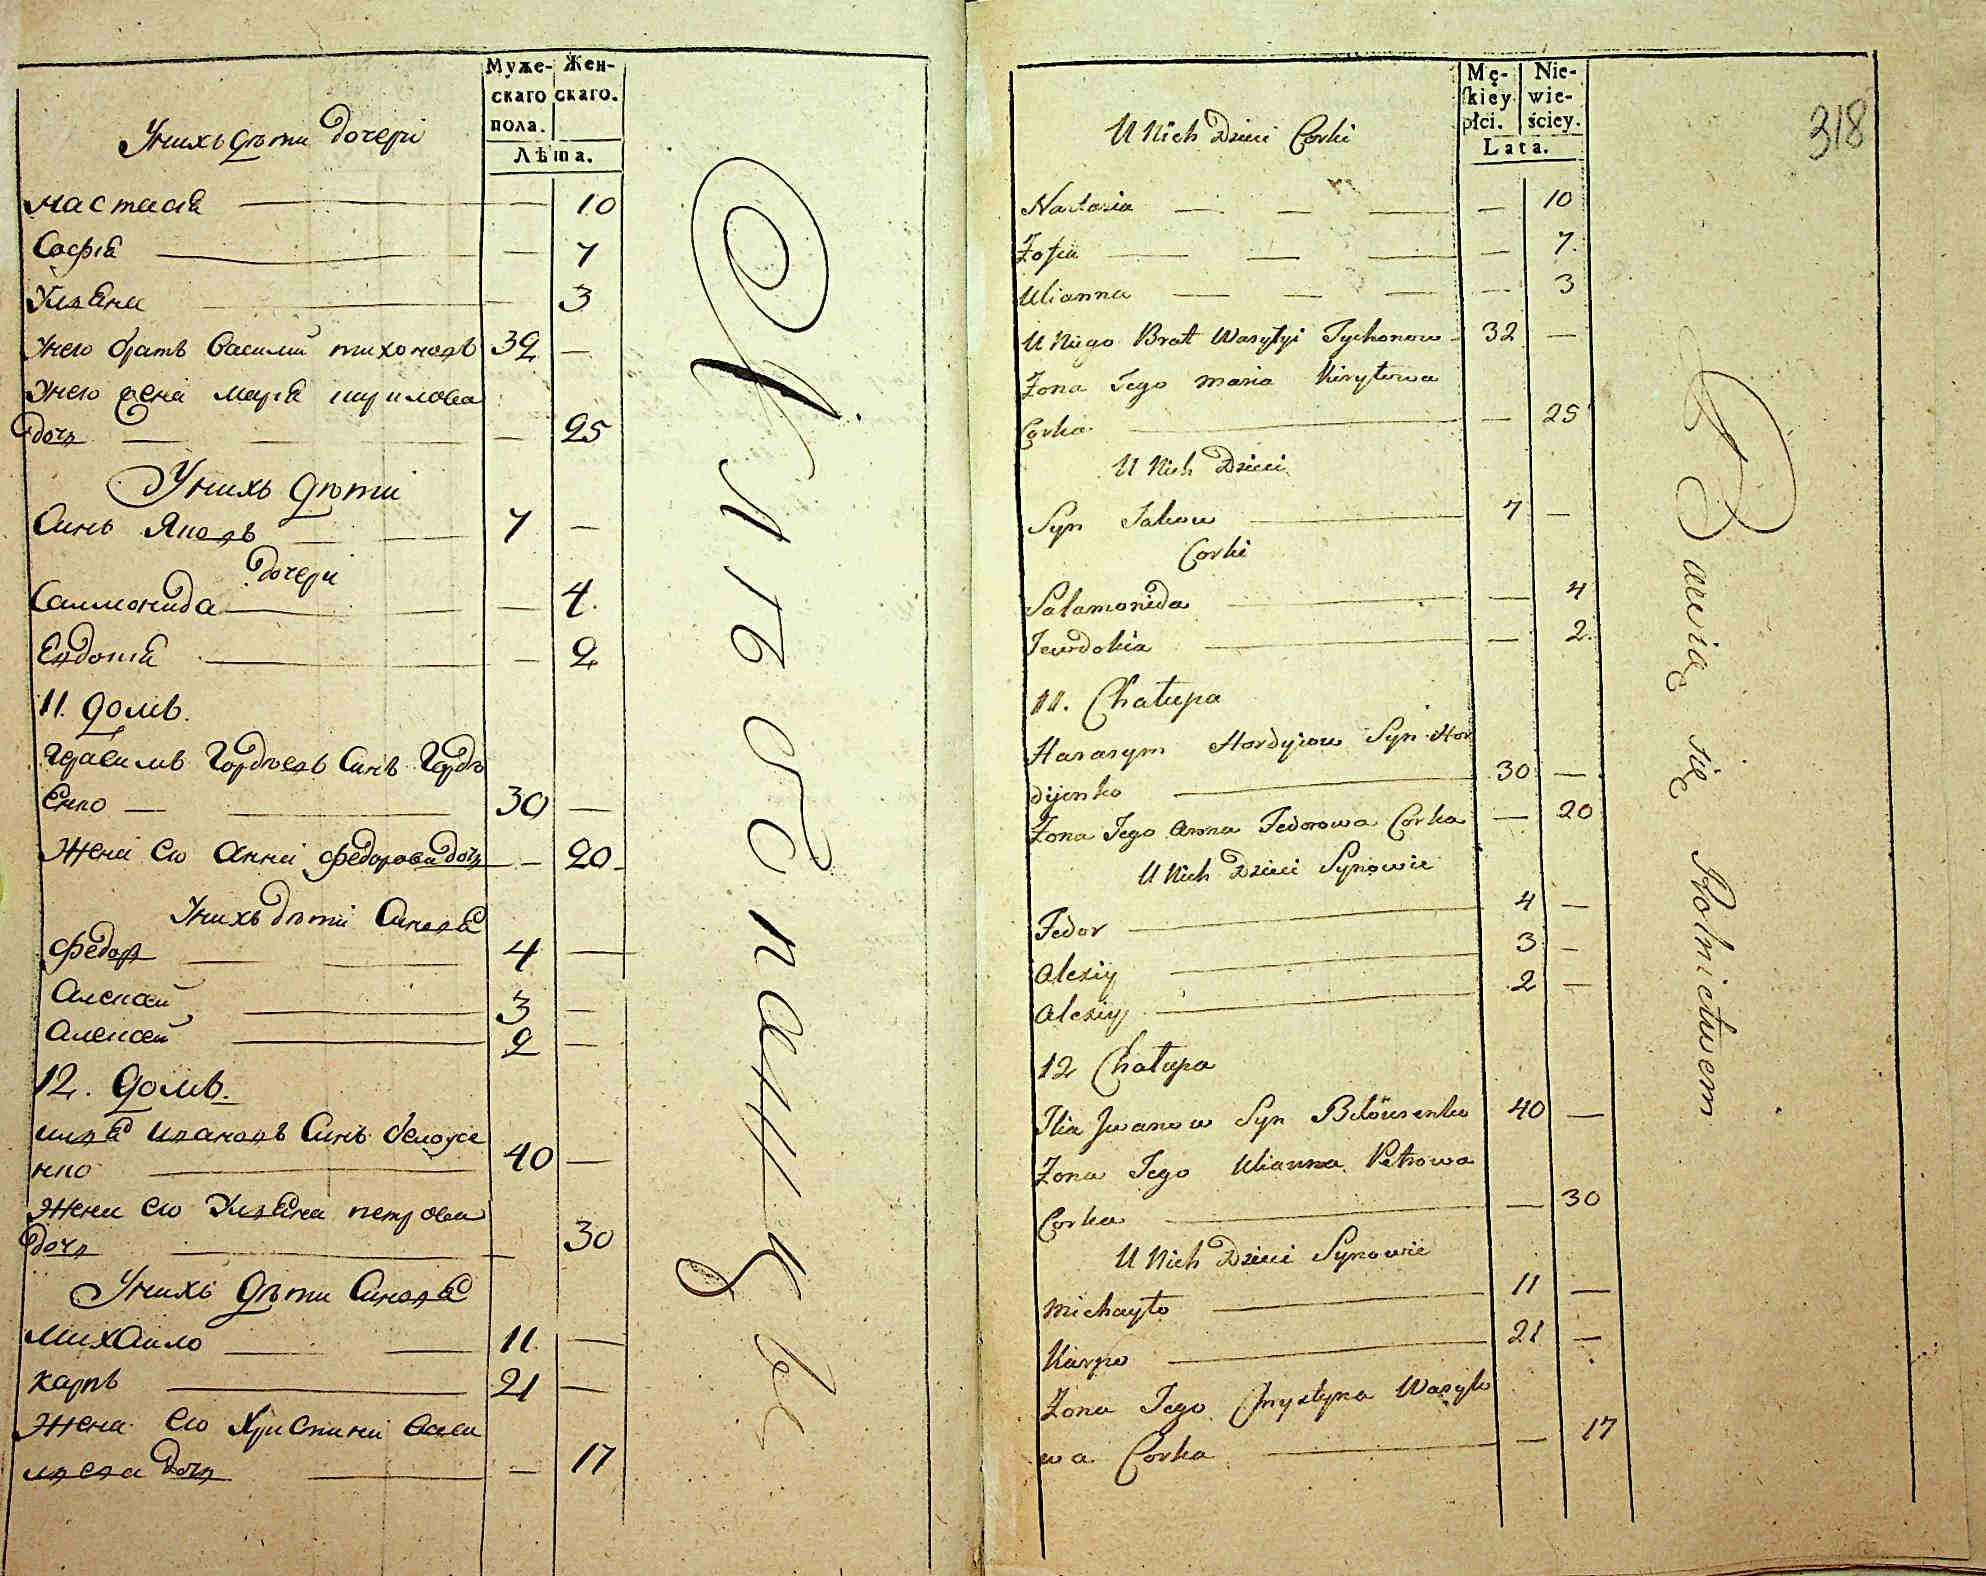 Муже-
скаго
пола.
Жен-
скаго.
Лѣта.
Унихъ дѣти дочери
Настасія
10
Софія
7
Уляна
3
Унего братъ Василий тихоновъ
32
Унего жена Марія кирилова
дочь
25
Унихъ дѣти
Синъ Яковъ
7
дочери
Саломонида
4
Евдокія
2
11. домъ.
Герасимъ Гордѣевъ Синъ Гордѣ
Енко
30
Жена его Анна федорова дочь
20
Унихъ дѣти Синовя
федоръ
4
Алексѣй
3
Алексѣй
2
12. домъ.
Иля Ивановъ Синъ белоусе
нко
40
Жена его Уляна петрова
дочь
30
Унихъ дѣти Синовя
михайло
11
карпъ
21
Жена его Христина васи
лева дочь
17
Хлѣбопашцы
Mę-
skiey
płci.
Nie-
wie-
ściey.
Lata.
318
U Nich Dzieci Corki
Nastazia
10
Zofia
7
Ulianna
3
U Niego Brat Wasylyi Tychonow
32
Zona Jego Maria Kiryłowa
Corka
25
U Nich Dzieci
Syn Jakow
7
Corki
Salamonida
4
Jewdokia
2
11. Chałupa
Harasym Hordyiow Syn Hor
dijenko
30
Zona Jego Anna Fedorowa Corka
20
U Nich Dzieci Synowie
Fedor
4
Alexiy
3
Alexiy
2
12 Chałupa
Ilia Jwanow Syn Biłousenko
40
Zona Jego Ulianna Petrowa
Corka
30
U Nich Dzieci Synowie
Michayło
11
Karpo
21
Zona Jego Chrystyna Wasylo
wa Corka
17
Bawią się Rolnictwem